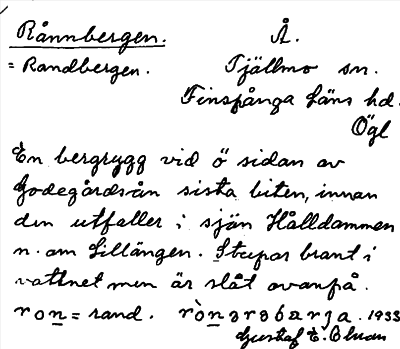 Rånnbergen. Å.
= Randbergen. Tjällmo sn.
Finspånga läns hd.
Ögl
En bergrygg vid ö sidan av
Godegårdsån sista biten, innan
den utfaller i sjön Hålldammen
n. om Lillängen. Stupar brant i
vattnet men är slät ovanpå.
ron = rand. rònarabarja. 1933
Gustaf E. Olson